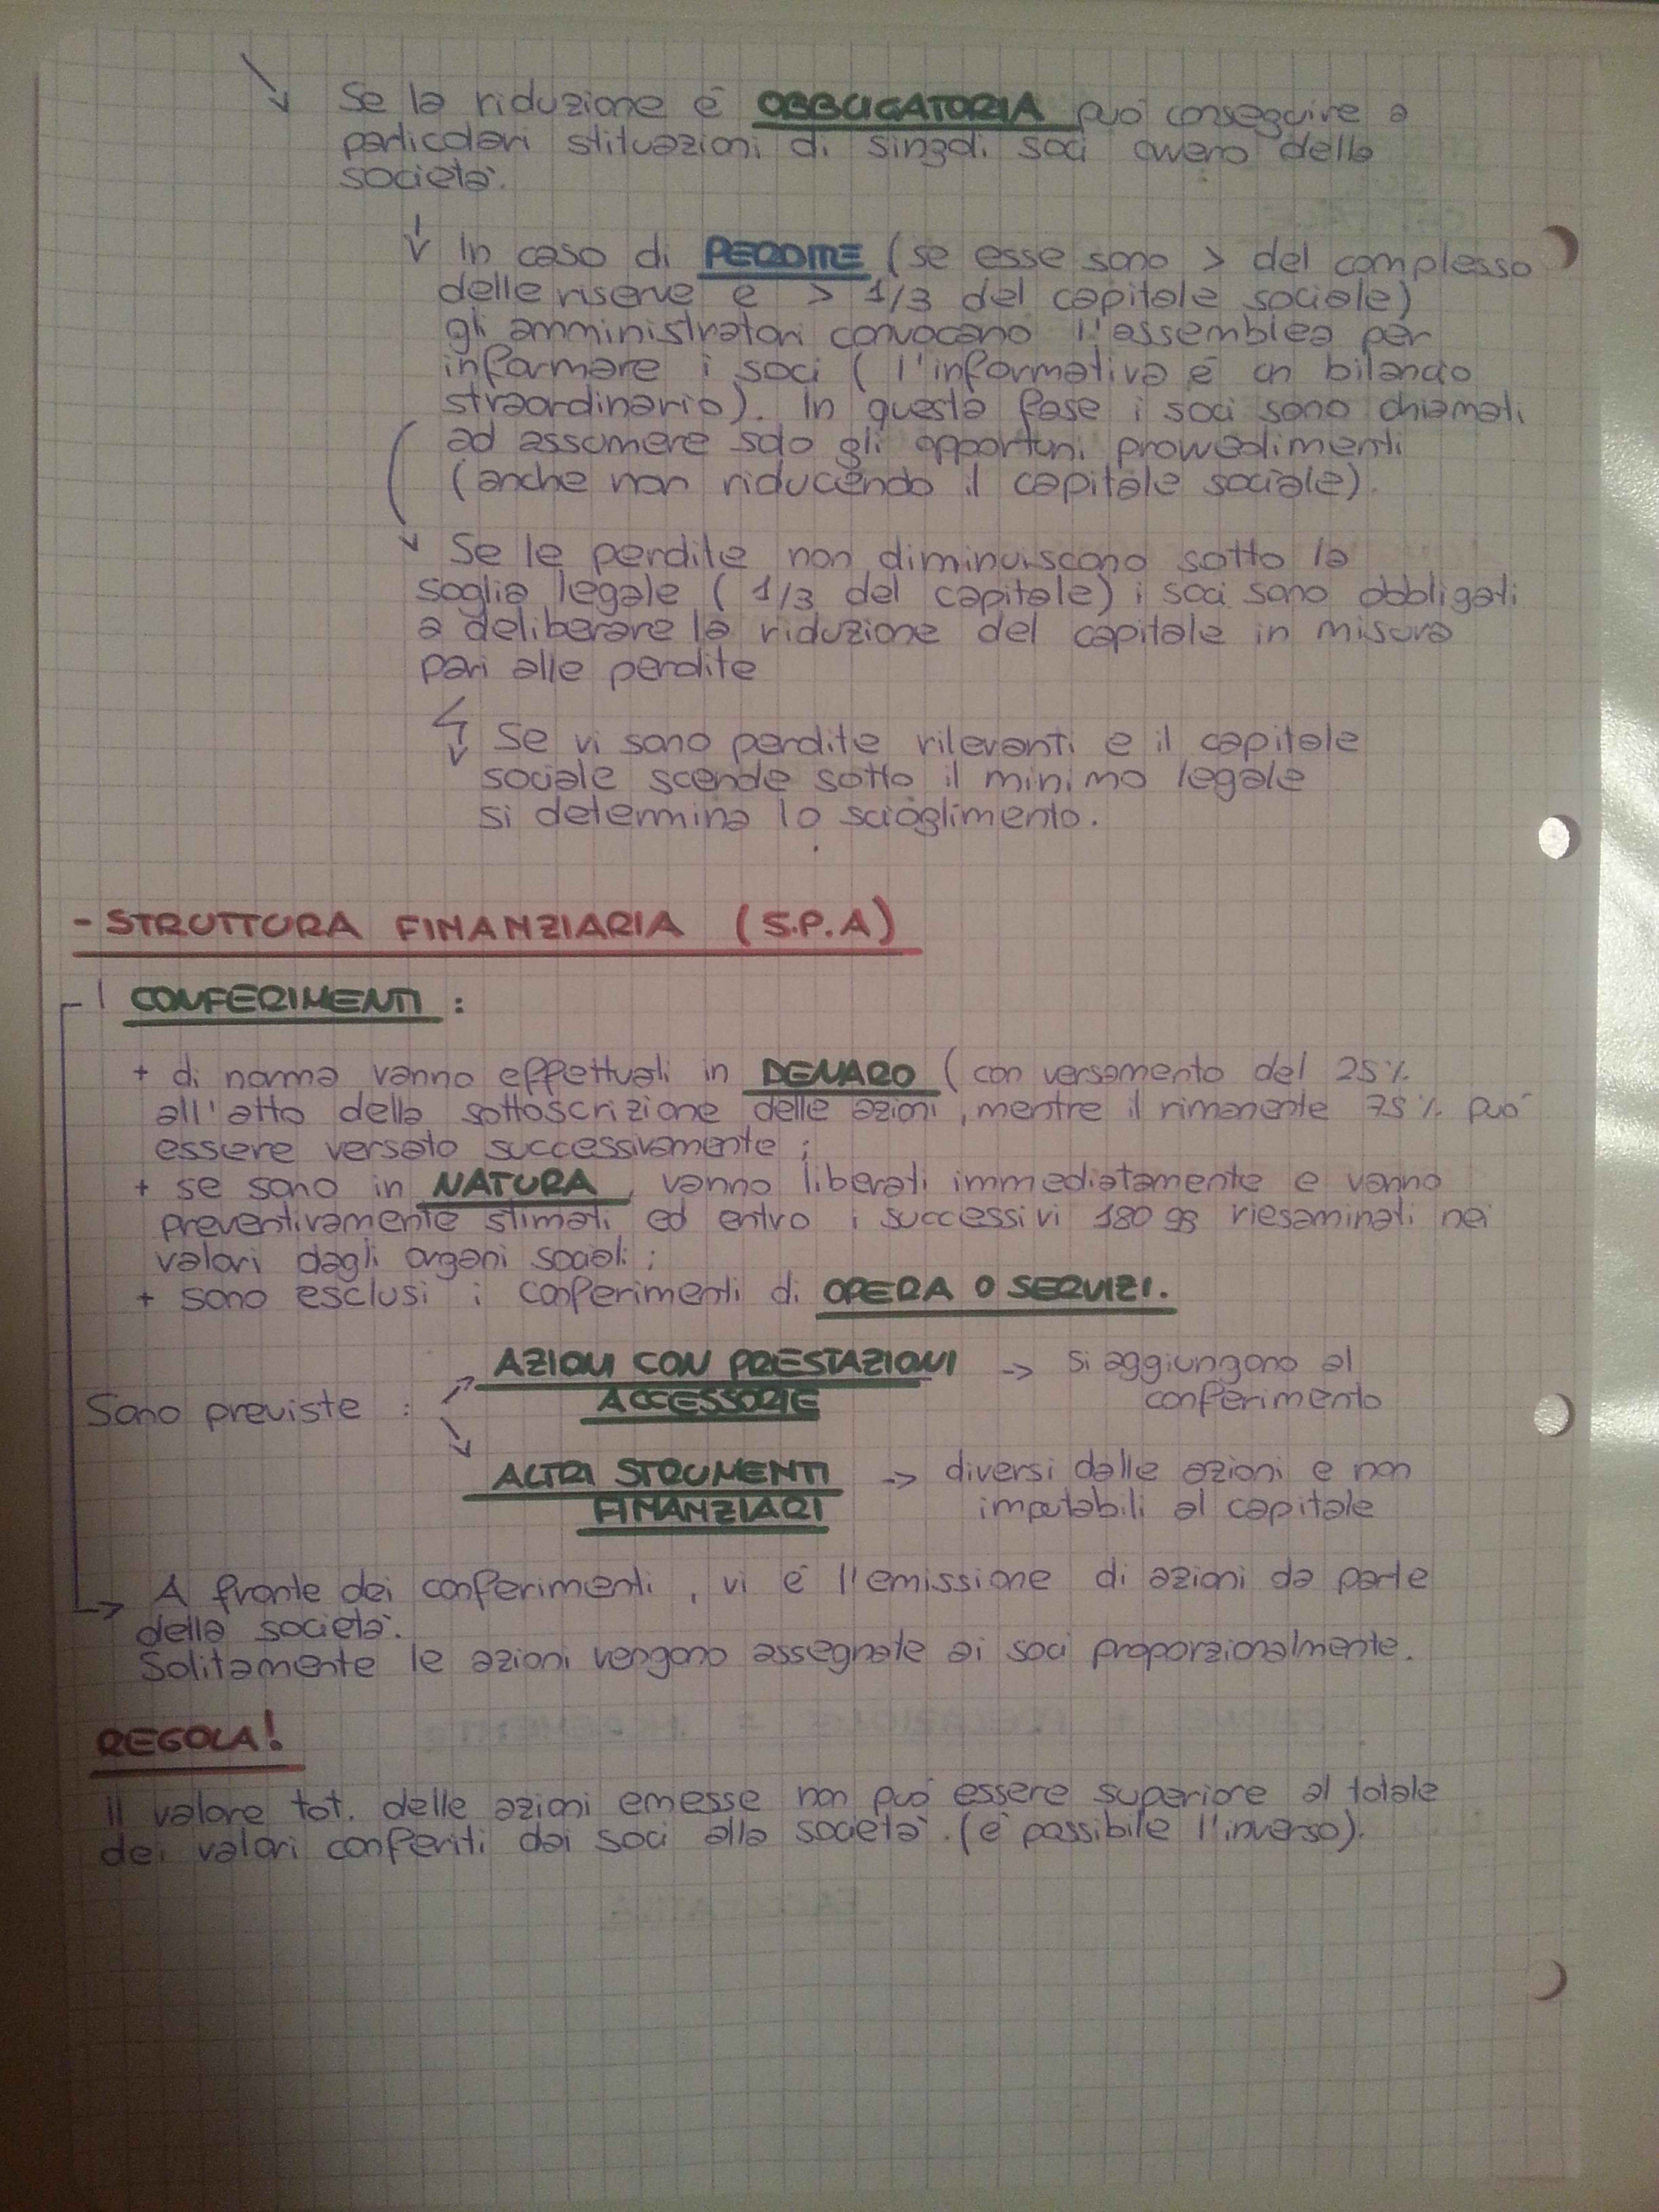 Se la riduzione è OBBLIGATORIA può conseguire a
particolari stituazioni di singoli soci ovvero della
società.
In caso di PERDITE (se esse sono > del complesso
delle riserve e > 1/3 del capitale sociale)
gli amministratori convocano l'assemblea per
informare i soci ( l'informativa è un bilancio
straordinario). In questa fase i soci sono chiamati
ad assumere solo gli opportuni provvedimenti
(anche non riducendo il capitale sociale).
Se le perdite non diminuiscono sotto la
soglia legale ( 1/3 del capitale) i soci sono obbligati
a deliberare la riduzione del capitale in misura
pari alle perdite
Se vi sono perdite rilevanti e il capitale
sociale scende sotto il minimo legale
si determina lo scioglimento.
- STRUTTURA FINANZIARIA (S.P.A)
CONFERIMENTI :
+ di norma vanno effettuati in DENARO ( con versamento del 25%
all'atto della sottoscrizione delle azioni, mentre il rimanente 75% può
essere versato successivamente ;
+ se sono in NATURA, vanno liberati immediatamente e vanno
preventivamente stimati ed entro i successivi 180 gg riesaminati nei
valori dagli organi sociali ;
+ sono esclusi i conferimenti di OPERA O SERVIZI.
AZIONI CON PRESTAZIONI -> si aggiungono al
ACCESSORIE conferimento
Sono previste :
ALTRI STRUMENTI -> diversi dalle azioni e non
FINANZIARI imputabili al capitale
A fronte dei conferimenti, vi è l'emissione di azioni da parte
della società.
Solitamente le azioni vengono assegnate ai soci proporzionalmente.
REGOLA!
Il valore tot. delle azioni emesse non può essere superiore al totale
dei valori conferiti dai soci alla società. (è possibile l'inverso).